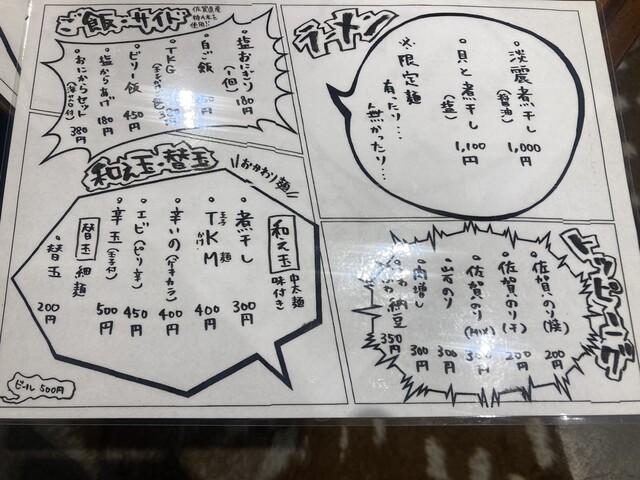 ラーメン
・淡震煮干し(醤油) 1,000円
・貝と煮干し(塩) 1,100円
※限定麺 有ったり…無かったり…
ご飯・サイド
佐賀県産
使用!!
・塩おにぎり(1個) 180円
・白ご飯
・TKG
・ビリー飯 450円
・塩からあげ 180円
・おにからセット 380円
和え玉・替玉
おかわり麺
和え玉 中太麺 味付き
・煮干し 300円
・TKM 400円
・辛いの(ゲキカラ) 400円
・エビ(ピリ辛) 450円
・辛玉(玉子付) 500円
替玉 細麺
・替玉 200円
ビール 500円
トッピング
・佐賀のり(焼) 200円
・佐賀のり(干) 200円
・佐賀のり(MIX) 300円
・岩のり 300円
・肉増し 300円
納豆 350円